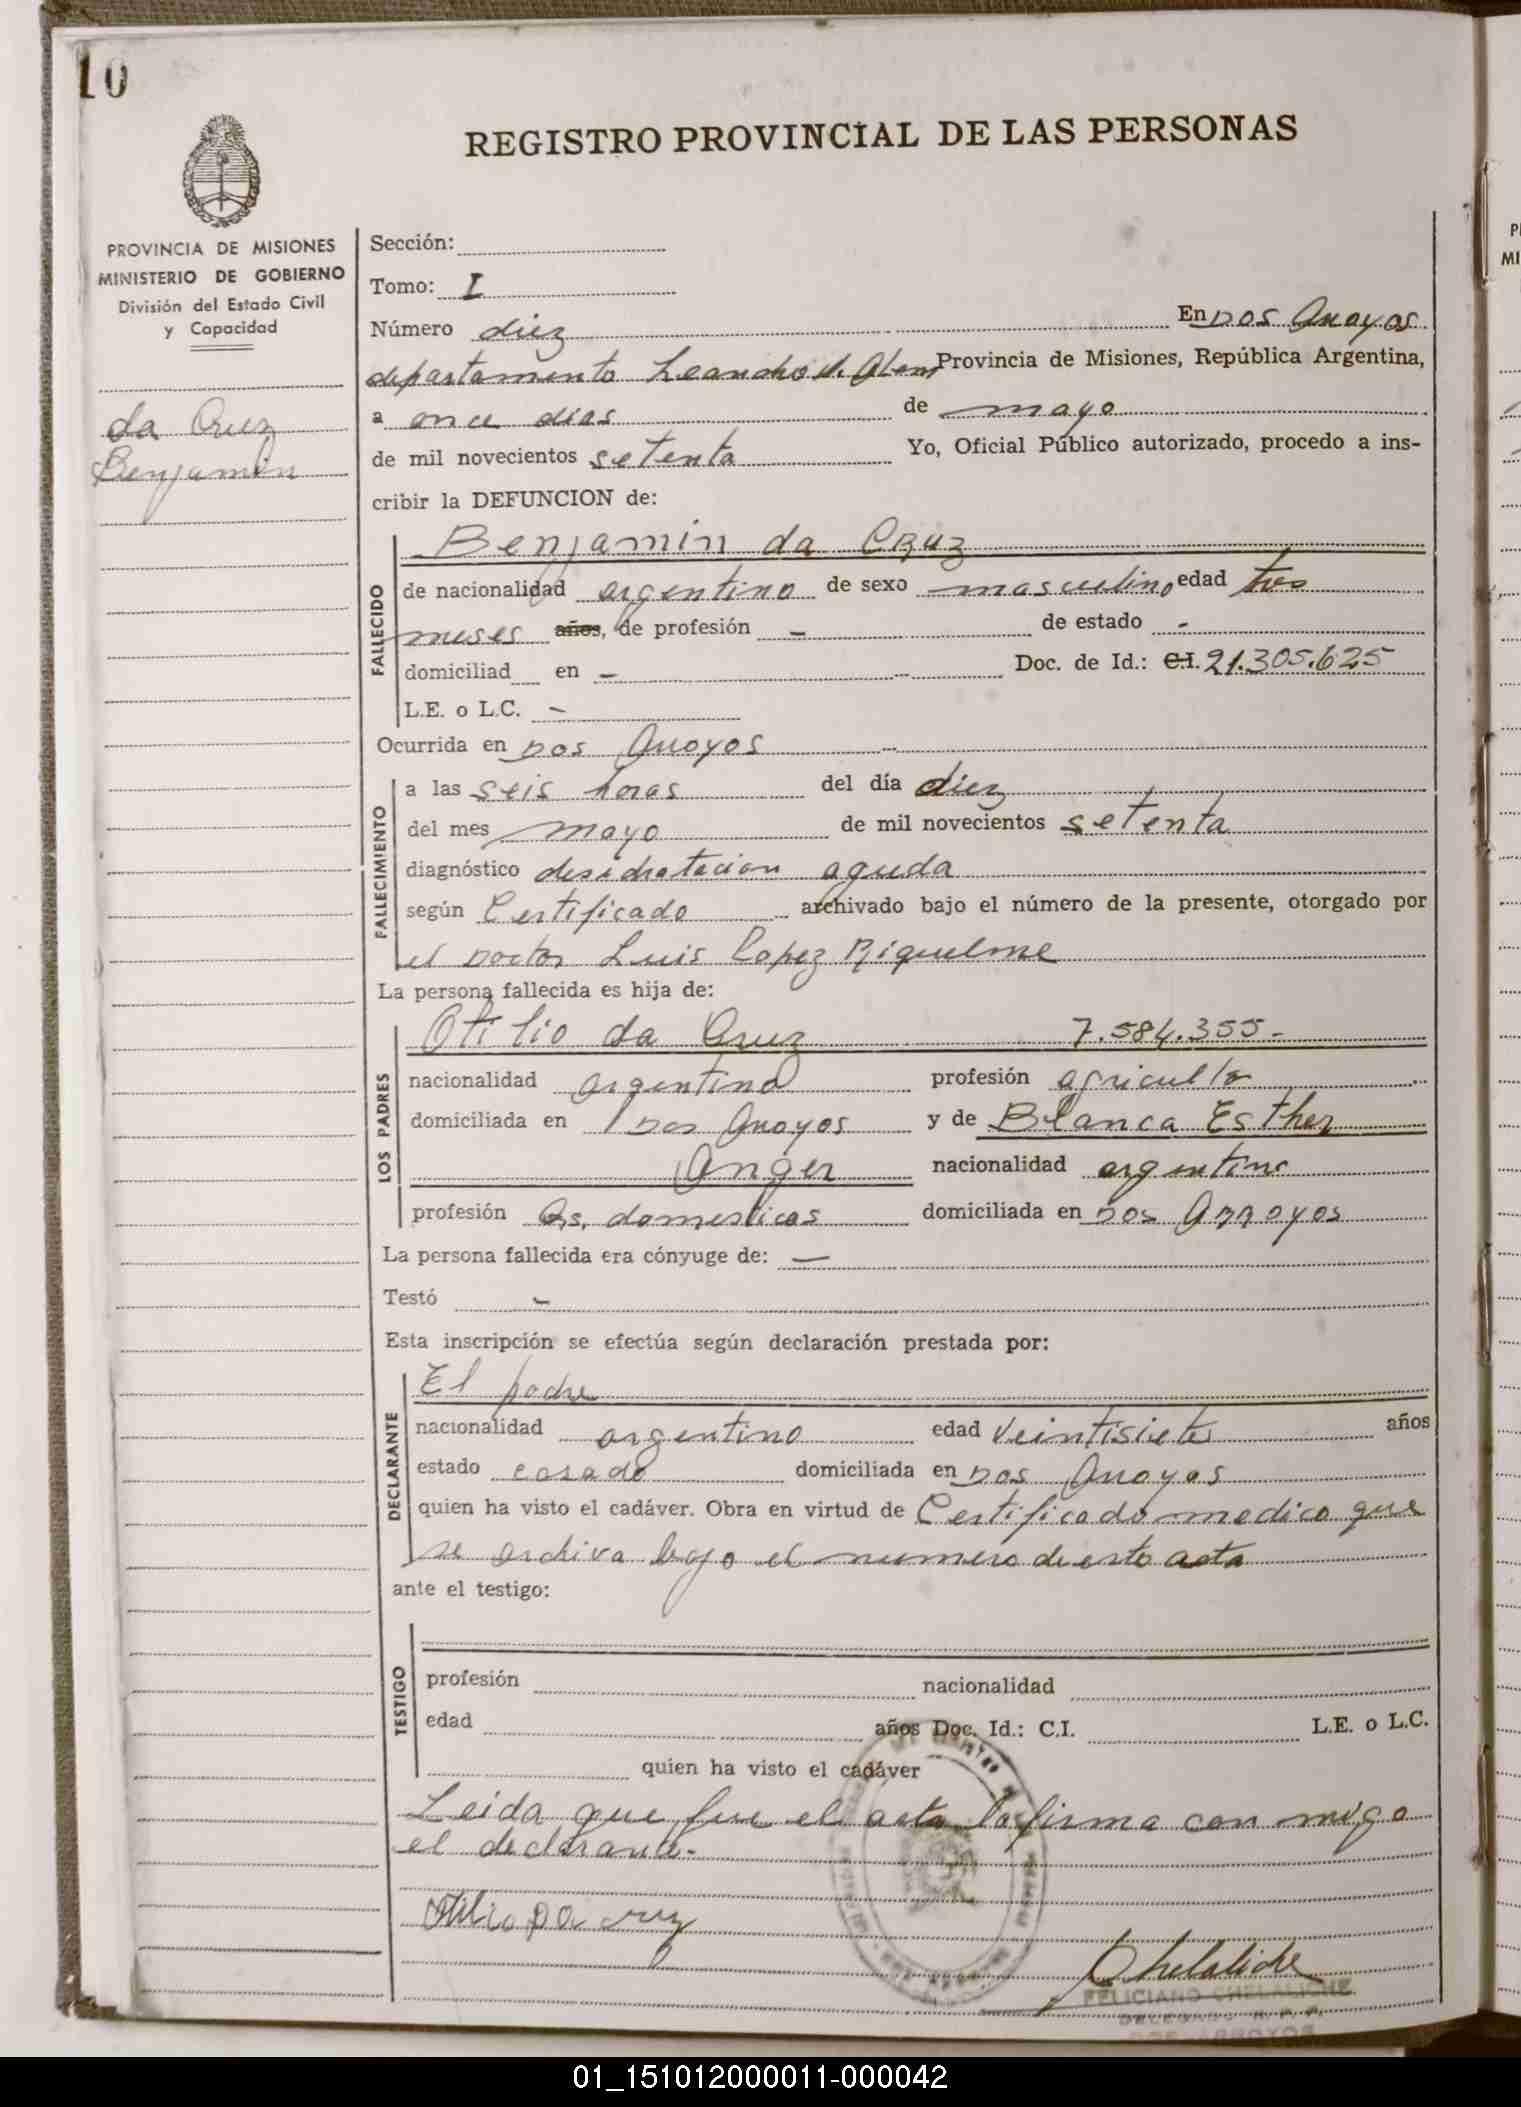 10
REGISTRO PROVINCIAL DE LAS PERSONAS
PROVINCIA DE MISIONES
MINISTERIO DE GOBIERNO
División del Estado Civil
y Capacidad
da Cruz
Benjamín
Sección:
Tomo: I
Número diez En Dos Arroyos
departamento Leandro N. Alem Provincia de Misiones, República Argentina,
a once dias de mayo
de mil novecientos setenta Yo, Oficial Público autorizado, procedo a ins-
cribir la DEFUNCION de:
FALLECIDO
Benjamin da Cruz
de nacionalidad argentino de sexo masculino edad tres
meses años, de profesión - de estado -
domiciliad en - Doc. de Id.: C.I. 21.305.625
L.E. o L.C. -
Ocurrida en Dos Arroyos
FALLECIMIENTO
a las seis horas del día diez
del mes mayo de mil novecientos setenta
diagnóstico desidratacion aguda
según Certificado archivado bajo el número de la presente, otorgado por
el Doctor Luis Lopez Riquelme
La persona fallecida es hija de:
LOS PADRES
Otilio da Cruz 7.584.355-
nacionalidad argentina profesión agricultor
domiciliada en Dos Arroyos y de Blanca Esther
Anger nacionalidad argentina
profesión Qs. domesticos domiciliada en Dos Arroyos
La persona fallecida era cónyuge de: -
Testó -
Esta inscripción se efectúa según declaración prestada por:
DECLARANTE
El padre
nacionalidad argentino edad veintisiete años
estado casado domiciliada en Dos Arroyos
quien ha visto el cadáver. Obra en virtud de Certificado medico que
se archiva bajo el numero de esta acta
ante el testigo:
TESTIGO
profesión nacionalidad
edad años Doc. Id.: C.I. L.E. o L.C.
quien ha visto el cadáver
Leida que fue el acta la firma con migo
el declarante.
Otilio Da Cruz
Chelaliche
FELICIANO CHELALICHE
DELEGADO R. P. P.
DOS ARROYOS
01_151012000011-000042